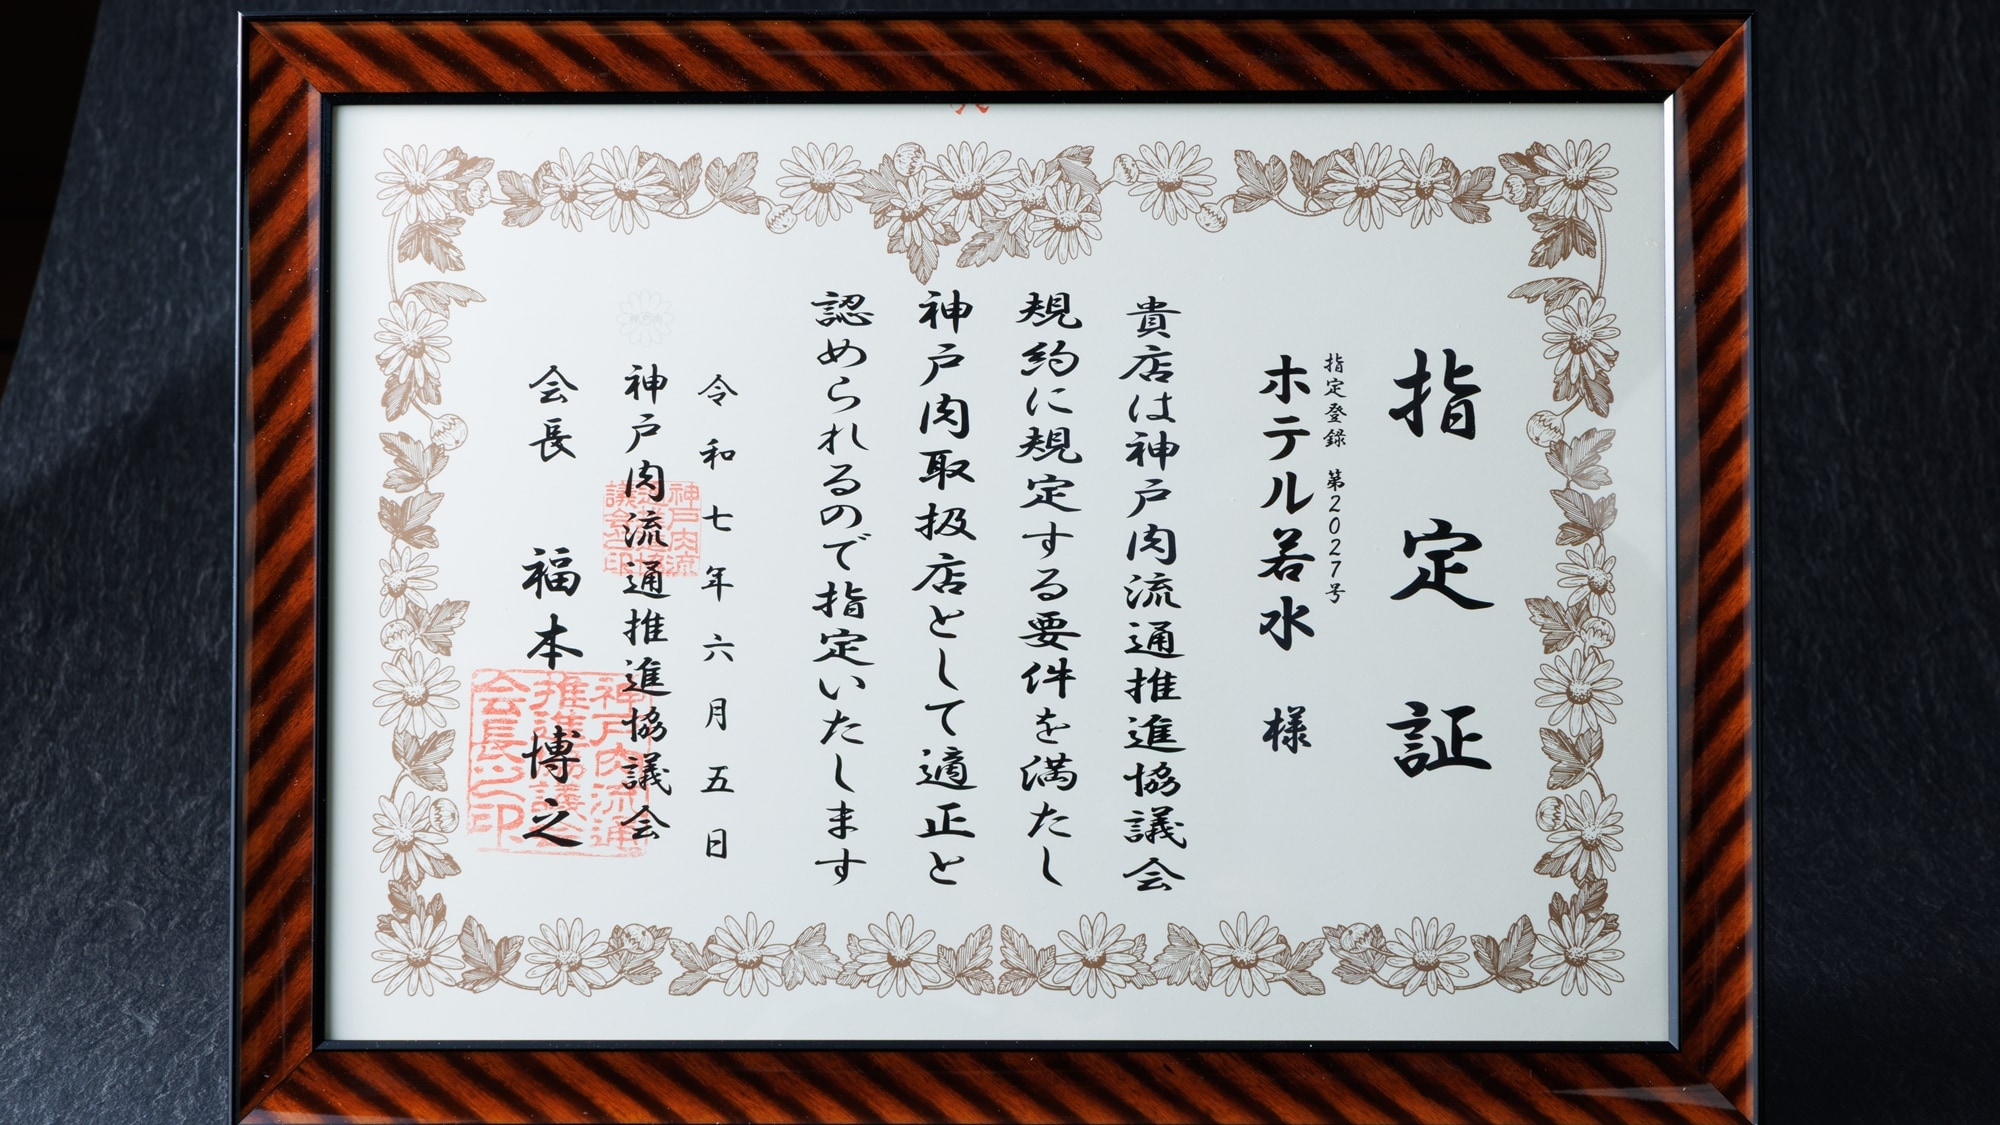 指定証
指定登録 第2027号
ホテル若水 様
貴店は神戸肉流通推進協議会
規約に規定する要件を満たし
神戸肉取扱店として適正と
認められるので指定いたします
令和七年六月五日
神戸肉流通推進協議会
会長 福本博之
神戸肉流通推進協議会之印
神戸肉流通推進協議会会長之印